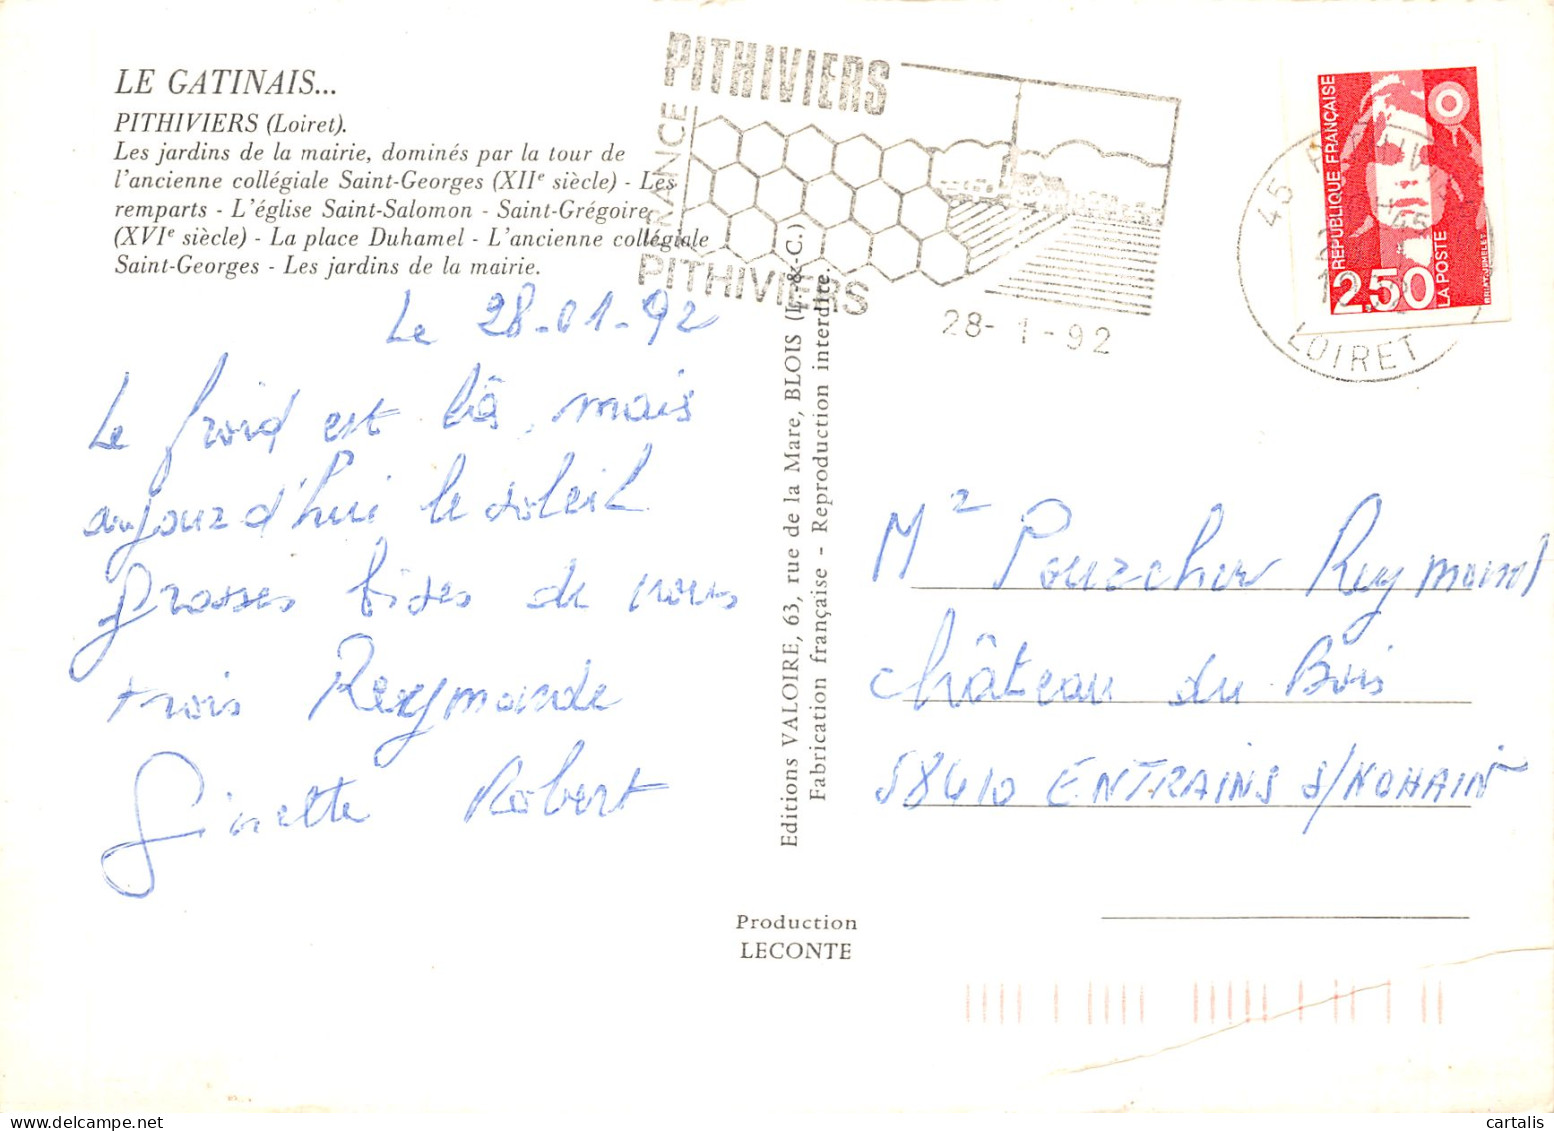 LE GATINAIS...
PITHIVIERS (Loiret).
Les jardins de la mairie, dominés par la tour de
l'ancienne collégiale Saint-Georges (XIIe siècle) - Les
remparts - L'église Saint-Salomon - Saint-Grégoire
(XVIe siècle) - La place Duhamel - L'ancienne collégiale
Saint-Georges - Les jardins de la mairie.
Le 28-01-92
Le froid est là, mais
aujourd'hui le soleil
grosses bises de nous
trois Reymonde
Ginette Robert
PITHIVIERS
FRANCE
PITHIVIERS
28- 1 -92
45
LOIRET
REPUBLIQUE FRANÇAISE
2,50
LA POSTE
Editions VALOIRE, 63, rue de la Mare, BLOIS (L.-&-C.)
Fabrication française - Reproduction interdite.
Mr Pourcher Reymond
Château du Bois
58410 ENTRAINS S/NOHAIN
Production
LECONTE
cartalis